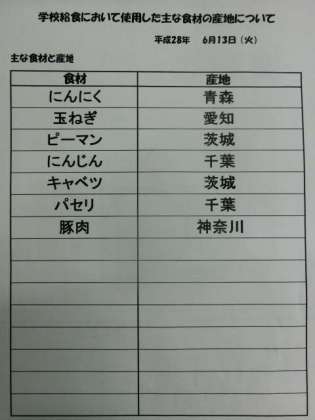 学校給食において使用した主な食材の産地について
平成28年 6月13日（火）
主な食材と産地
食材 産地
にんにく 青森
玉ねぎ 愛知
ピーマン 茨城
にんじん 千葉
キャベツ 茨城
パセリ 千葉
豚肉 神奈川